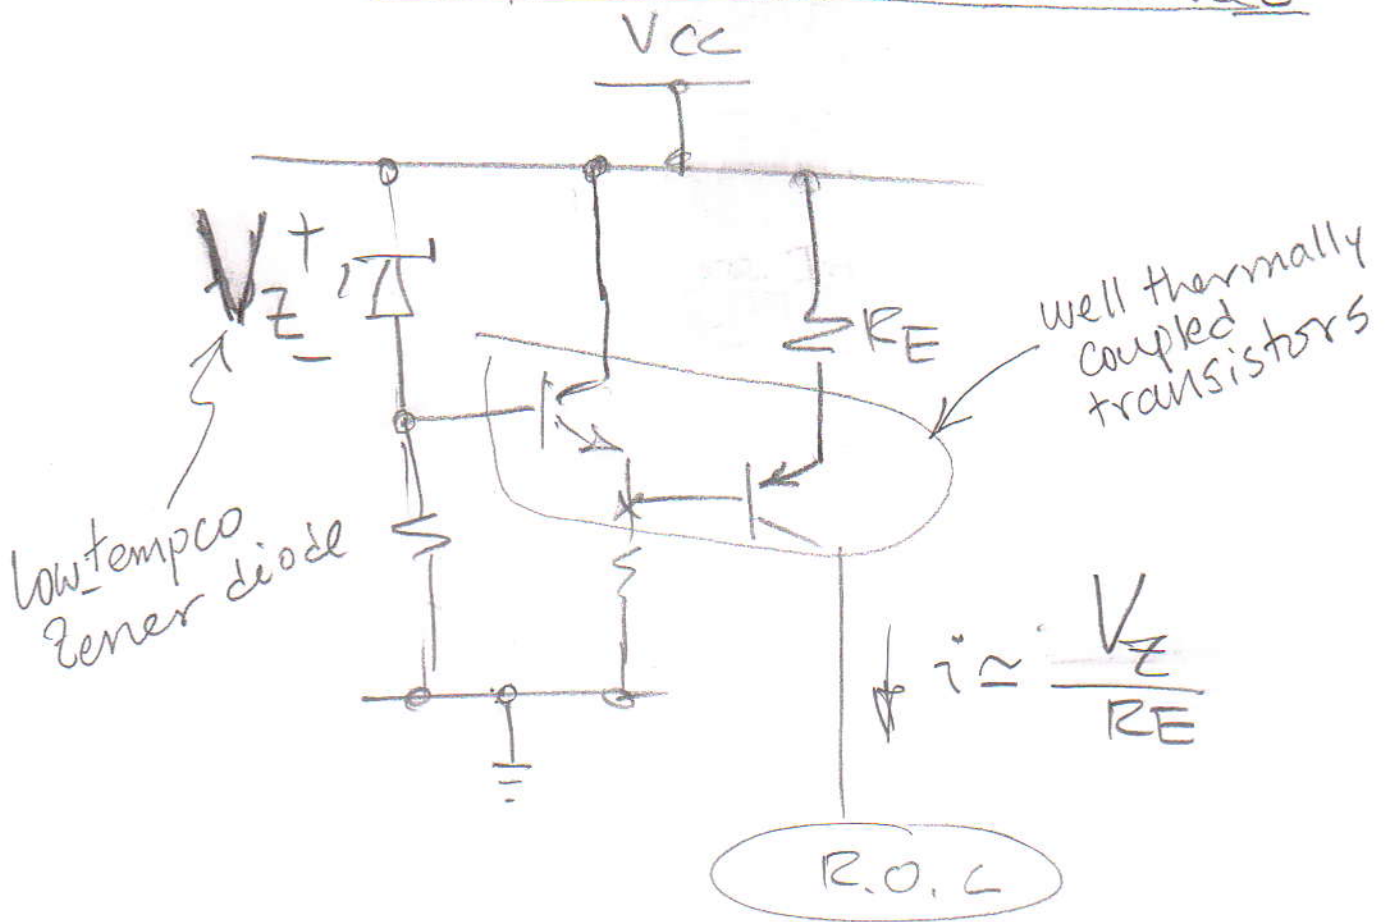 VCC
VZ
+
-
RE
well thermally
coupled
transistors
low tempco
zener diode
i ≃ VZ
RE
R.O.C